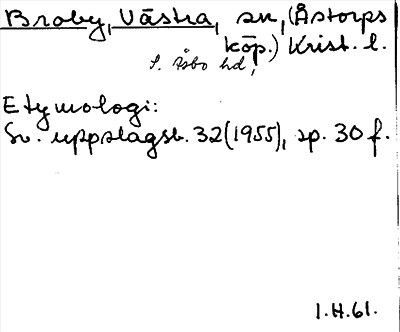 Broby, Västra, sn, (Åstorps
köp.) Krist. l.
S. Åsbo hd,
Etymologi:
Sv. uppslagsb. 32 (1955), sp. 30 f.
1.H.61.